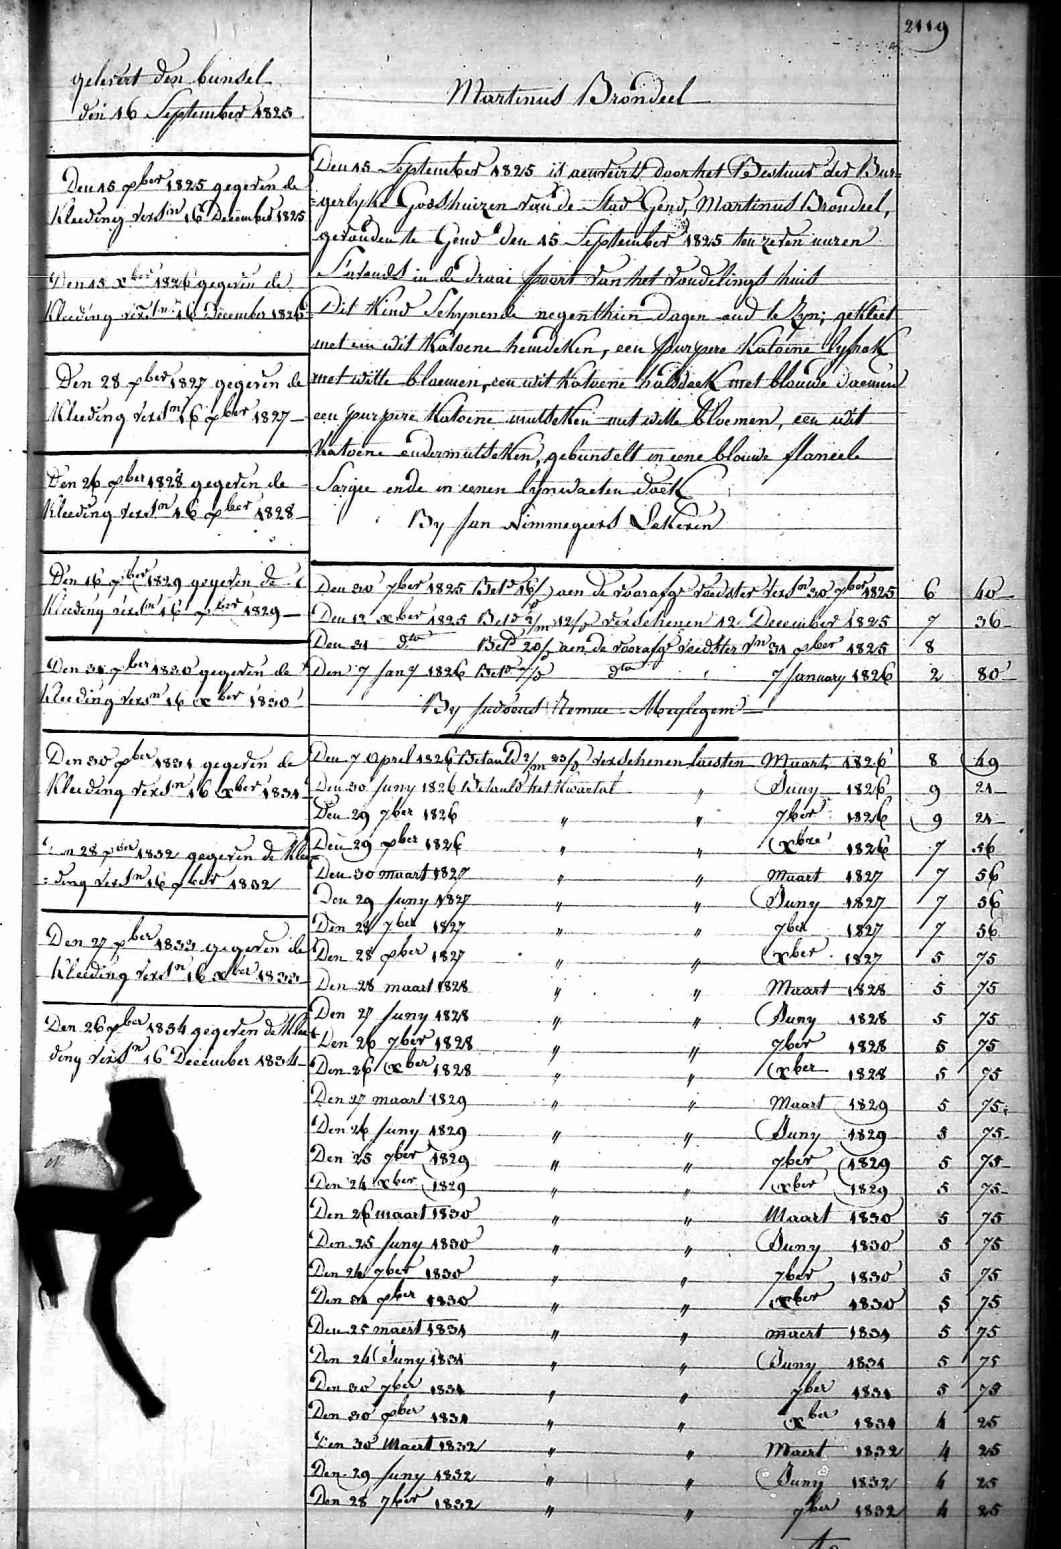 2119
gelevert den bunsel
den 16 September 1825
Martinus Brondeel
Den 15 xber 1825 gegeven de
Kleeding versn 16 December 1825
Den 15 xber 1826 gegeven de
Kleeding versn 16 December 1826
Den 28 xber 1827 gegeven de
Kleeding versn 16 xber 1827
Den 26 xber 1828 gegeven de
Kleeding versn 16 xber 1828
Den 16 xber 1829 gegeven de
Kleeding versn 16 xber 1829
Den 31 xber 1830 gegeven de
Kleeding versn 16 xber 1830
Den 30 xber 1831 gegeven de
Kleeding versn 16 xber 1831
28 xber 1832 gegeven de Klee
=ding versn 16 xber 1832
Den 27 xber 1833 gegeven de
Kleeding versn 16 xber 1833
Den 26 xber 1834 gegeven de Klee
ding versn 16 December 1834
Den 15 September 1825 is door het Bestuur der Bur=
=gerlyke Godshuizen van de Stad Gend, Martinus Brondeel,
gevonden te Gend den 15 September 1825 ten zeven uuren
S'avonds in de draai poort van het vondelings huis
Dit Kind Schynende negenthien dagen oud te Zyn; gekleet
met een wit Katoene hemdeken, een purpere Katoene lyfrok
met witte bloemen, een wit Katoene halsdoek met blauwe
een purpere Katoene mutseken met witte bloemen, een wit
Katoene ondermutseken, gebunselt in eene blauwe flaneele
Sargie ende in eenen lynwaeten doek
By Jan Nimmegeers Lokeren
Den 30 7ber 1825 Betd 16/ aen de voorafge voedster versn 30 7ber 1825 6 40
Den 12 xber 1825 Betd 2/m 12/ verschenen 12 December 1825 7 36
Den 31 dto Betd 20/ aen de voorafge voedster vn 31 xber 1825 8
Den 7 Jany 1826 Betd 7/ dto 7 January 1826 2 80
By Judocus Remue Meylegem
Den 7 April 1826 Betaald 2/m 23/ verschenen laesten Maart 1826 8 49
Den 30 Juny 1826 Betaald het Kwartal " Juny 1826 9 21
Den 29 7ber 1826 " " 7ber 1826 9 21
Den 29 xber 1826 " " xbre 1826 7 56
Den 30 maart 1827 " " Maart 1827 7 56
Den 29 Juny 1827 " " Juny 1827 7 56
Den 28 7ber 1827 " " 7ber 1827 7 56
Den 28 xber 1827 " " xber 1827 5 75
Den 28 maart 1828 " " Maart 1828 5 75
Den 27 Juny 1828 " " Juny 1828 5 75
Den 26 7ber 1828 " " 7ber 1828 5 75
Den 26 xber 1828 " " xber 1828 5 75
Den 27 maart 1829 " " Maart 1829 5 75
Den 26 Juny 1829 " " Juny 1829 5 75
Den 25 7ber 1829 " " 7ber 1829 5 75
Den 24 xber 1829 " " xber 1829 5 75
Den 26 maart 1830 " " Maart 1830 5 75
Den 25 Juny 1830 " " Juny 1830 5 75
Den 24 7ber 1830 " " 7ber 1830 5 75
Den 31 xber 1830 " " xber 1830 5 75
Den 25 maert 1831 " " maert 1831 5 75
Den 24 Juny 1831 " " Juny 1831 5 75
Den 30 7ber 1831 " " 7ber 1831 5 75
Den 30 xber 1831 " " xber 1831 4 25
Den 30 Maert 1832 " " Maert 1832 4 25
Den 29 Juny 1832 " " Juny 1832 4 25
Den 28 7ber 1832 " " 7ber 1832 4 25